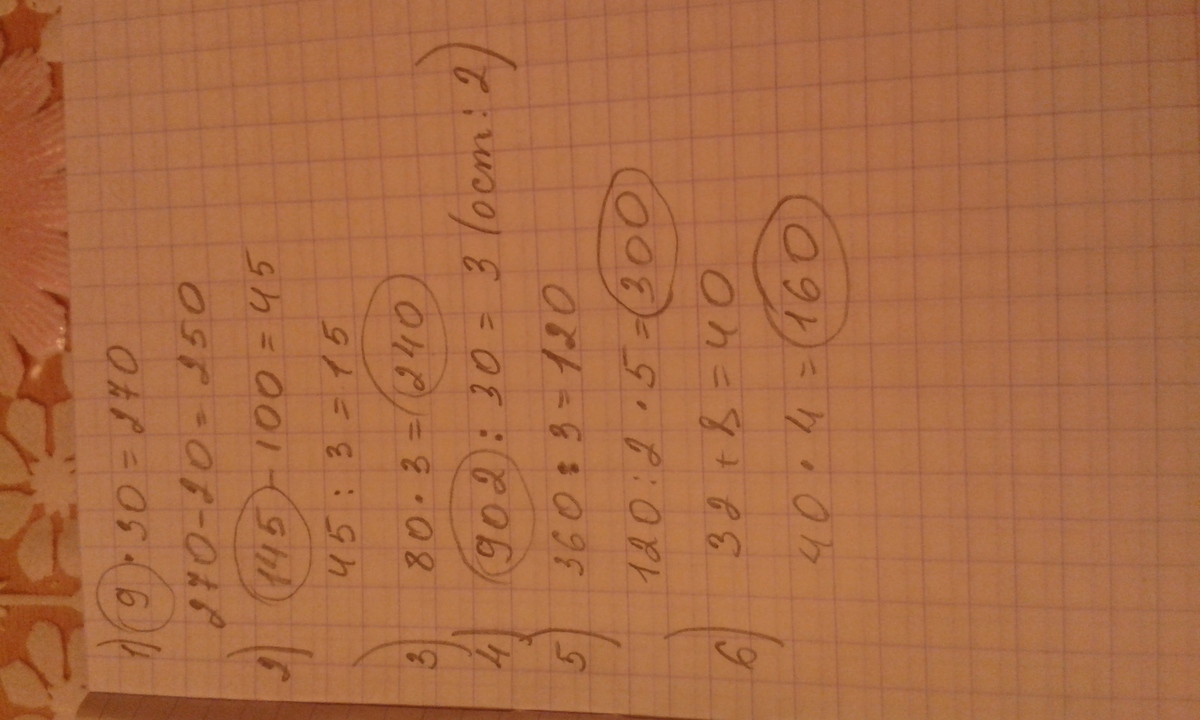 1) 9 · 30 = 270
270 - 20 = 250
2) 145 - 100 = 45
45 : 3 = 15
3) 80 · 3 = 240
4) 902 : 30 = 3 (ост: 2)
5) 360 : 3 = 120
120 : 2 · 5 = 300
6) 32 + 8 = 40
40 · 4 = 160